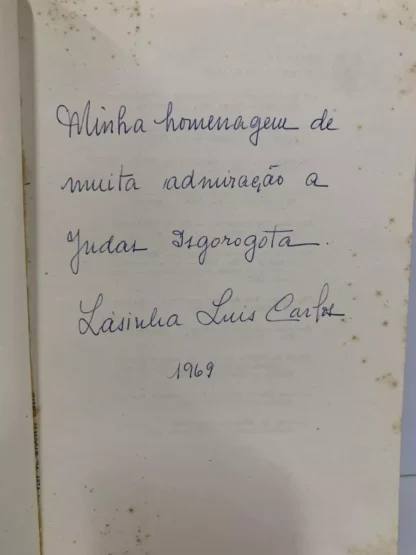 Minha homenagem de
muita admiração a
Judas Isgorogota.
Lasinha Luis Carlos
1969